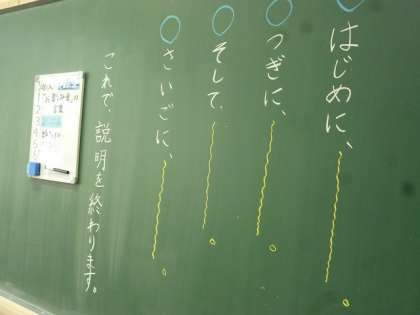 はじめに、
つぎに、
そして、
さいごに、
これで、説明を終わります。